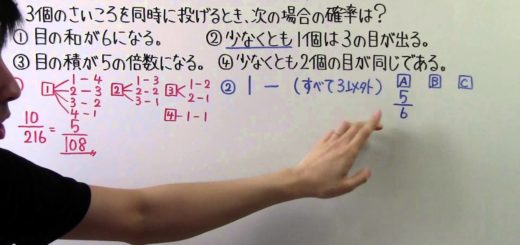 3個のさいころを同時に投げるとき、次の場合の確率は?
① 目の和が6になる。 ② 少なくとも1個は3の目が出る。
③ 目の積が5の倍数になる。 ④ 少なくとも2個の目が同じである。
1 1-4 2-3 3-2 4-1
2 1-3 2-2 3-1
3 1-2 2-1
4 -1-1
10/216 = 5/108
② 1 - (すべて3以外) A B C
5/6